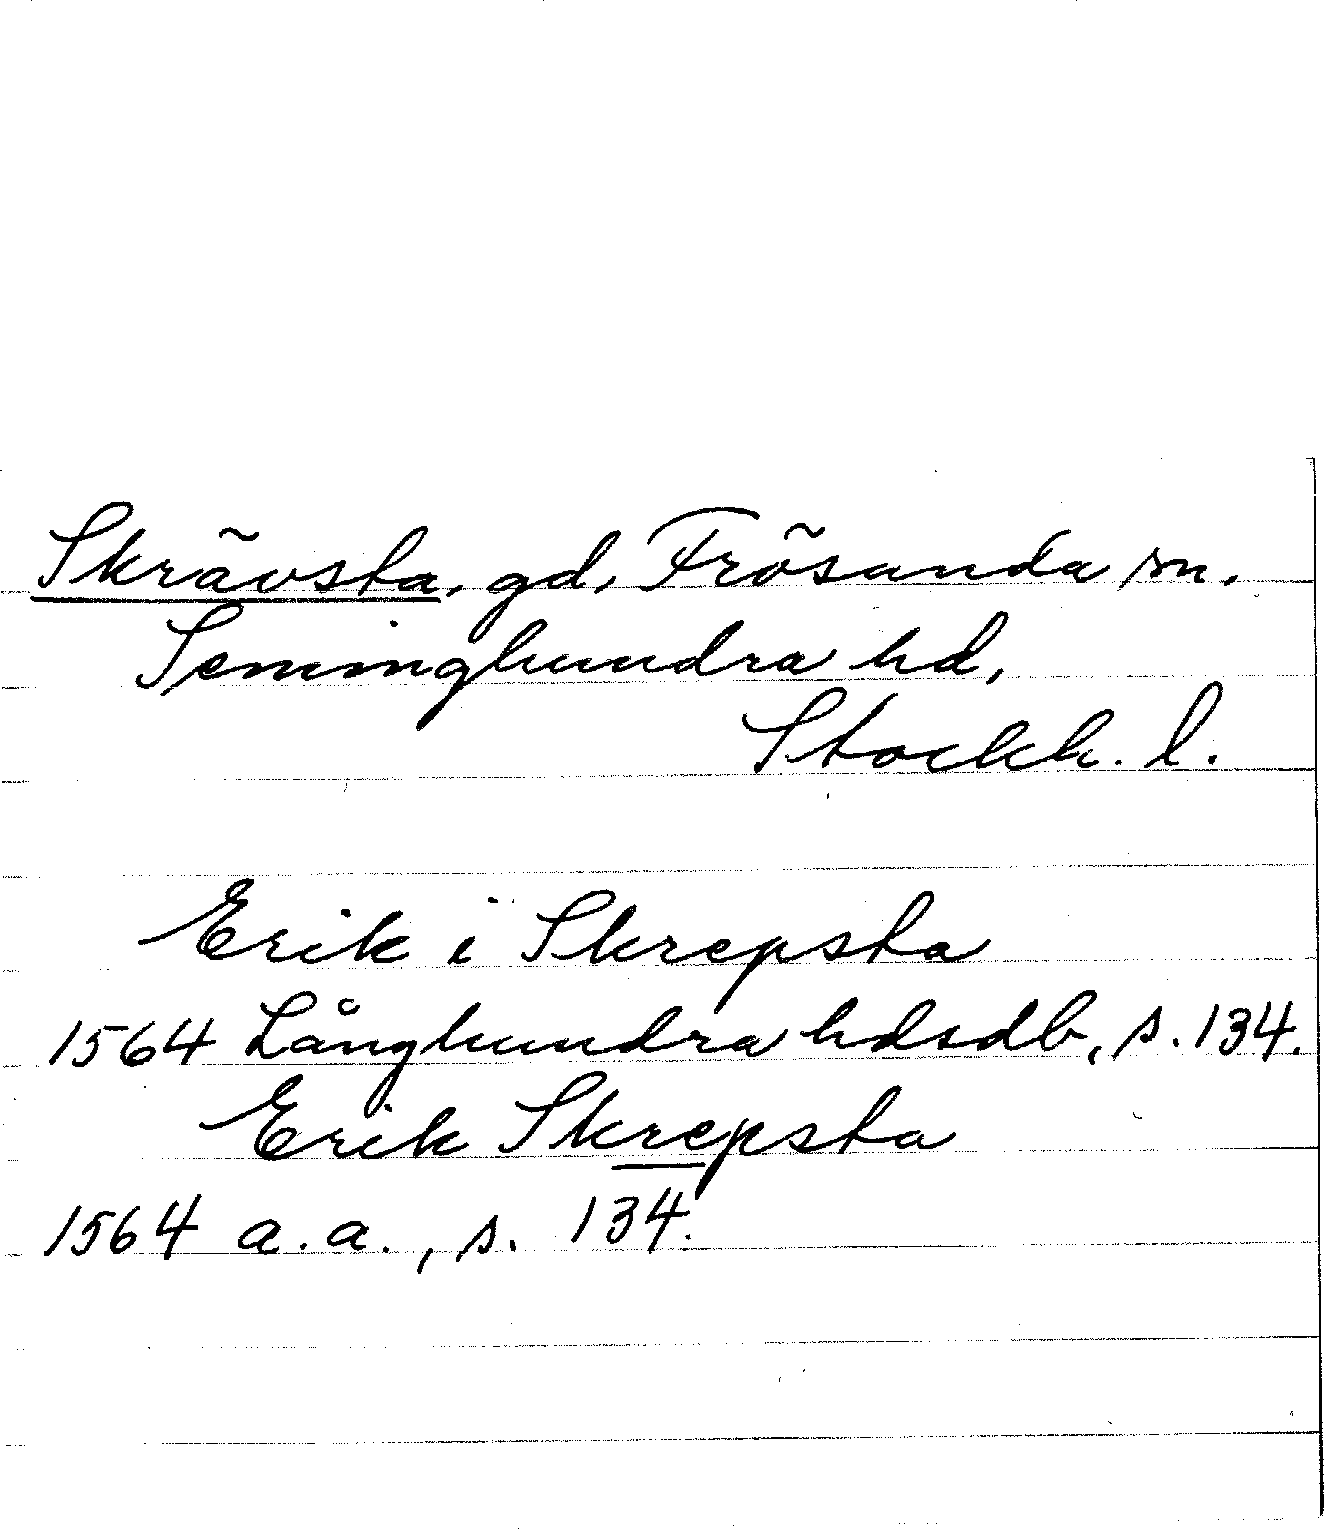 Skrävsta, gd, Frösunda sn.
Seminghundra hd,
Stockh. l.
Erik i Skrepsta
1564 Långhundra hdsdb, s. 134.
Erik Skrepsta
1564 a. a., s. 134.